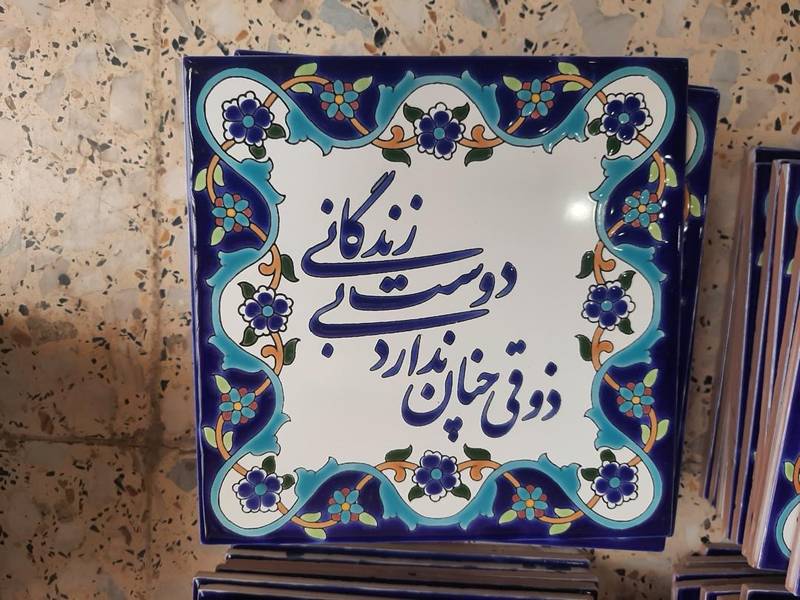 ذوقی چنان ندارد
بی دوست زندگانی